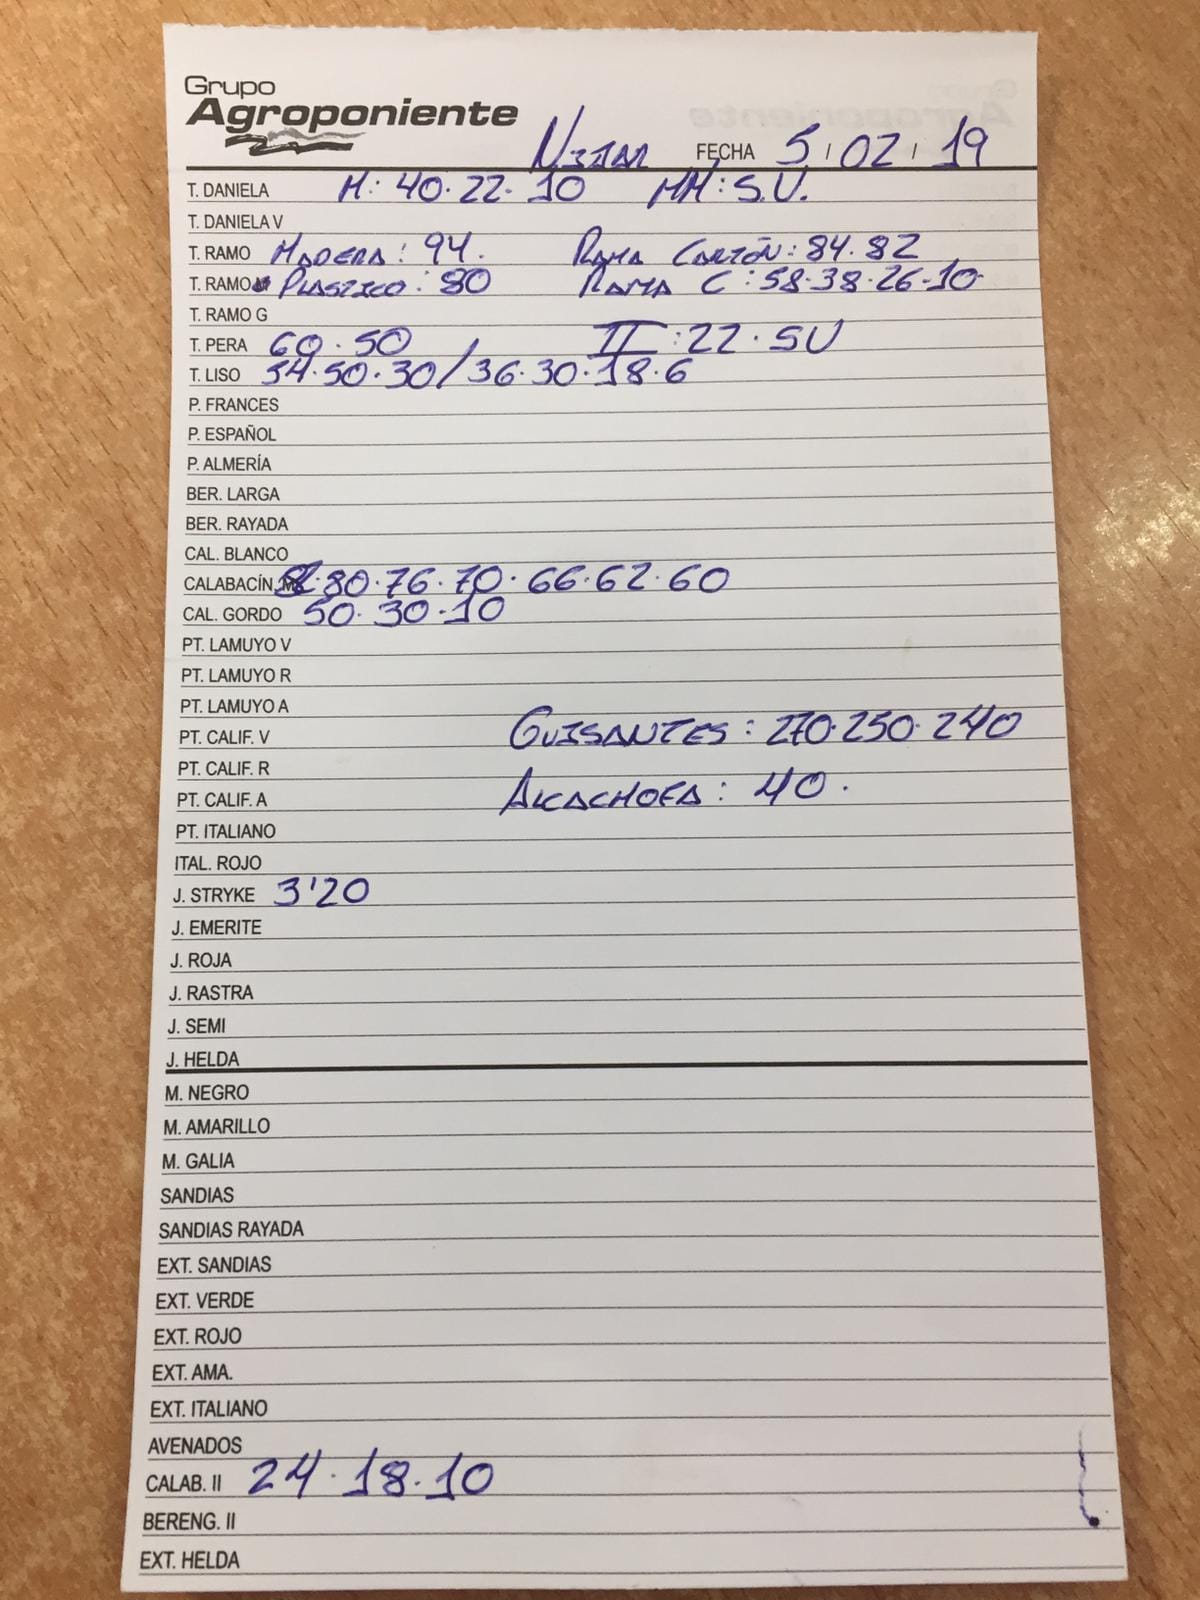 Grupo
Agroponiente
NIJAR FECHA 5 / 02 / 19
T. DANIELA M: 40.22.10 MM: S.U.
T. DANIELA V
T. RAMO MADERA: 94. RAMA CARTÓN: 84.82
T. RAMO PLASTICO: 80 RAMA C: 58.38.26.10
T. RAMO G
T. PERA 60.50 II: 22.SU
T. LISO 54.50.30/36.30.18.6
P. FRANCES
P. ESPAÑOL
P. ALMERÍA
BER. LARGA
BER. RAYADA
CAL. BLANCO
CALABACÍN 80.76.70.66.62.60
CAL. GORDO 50.30.10
PT. LAMUYO V
PT. LAMUYO R
PT. LAMUYO A
PT. CALIF. V GUISANTES: 270.250.240
PT. CALIF. R
PT. CALIF. A ALCACHOFA: 40.
PT. ITALIANO
ITAL. ROJO
J. STRYKE 3'20
J. EMERITE
J. ROJA
J. RASTRA
J. SEMI
J. HELDA
M. NEGRO
M. AMARILLO
M. GALIA
SANDIAS
SANDIAS RAYADA
EXT. SANDIAS
EXT. VERDE
EXT. ROJO
EXT. AMA.
EXT. ITALIANO
AVENADOS
CALAB. II 24.18.10
BERENG. II
EXT. HELDA